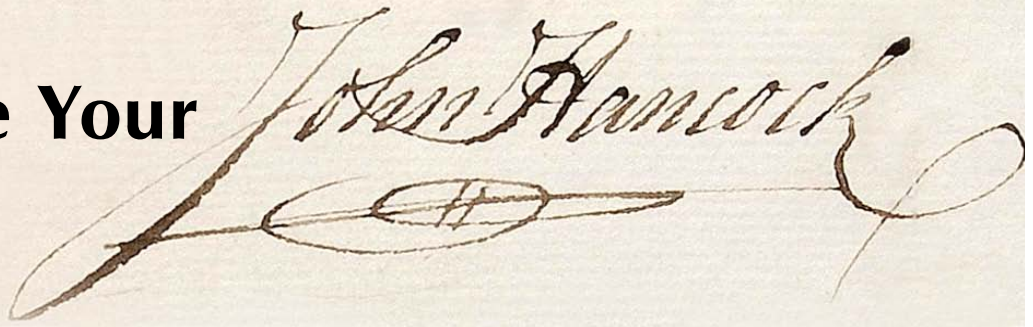 e Your John Hancock